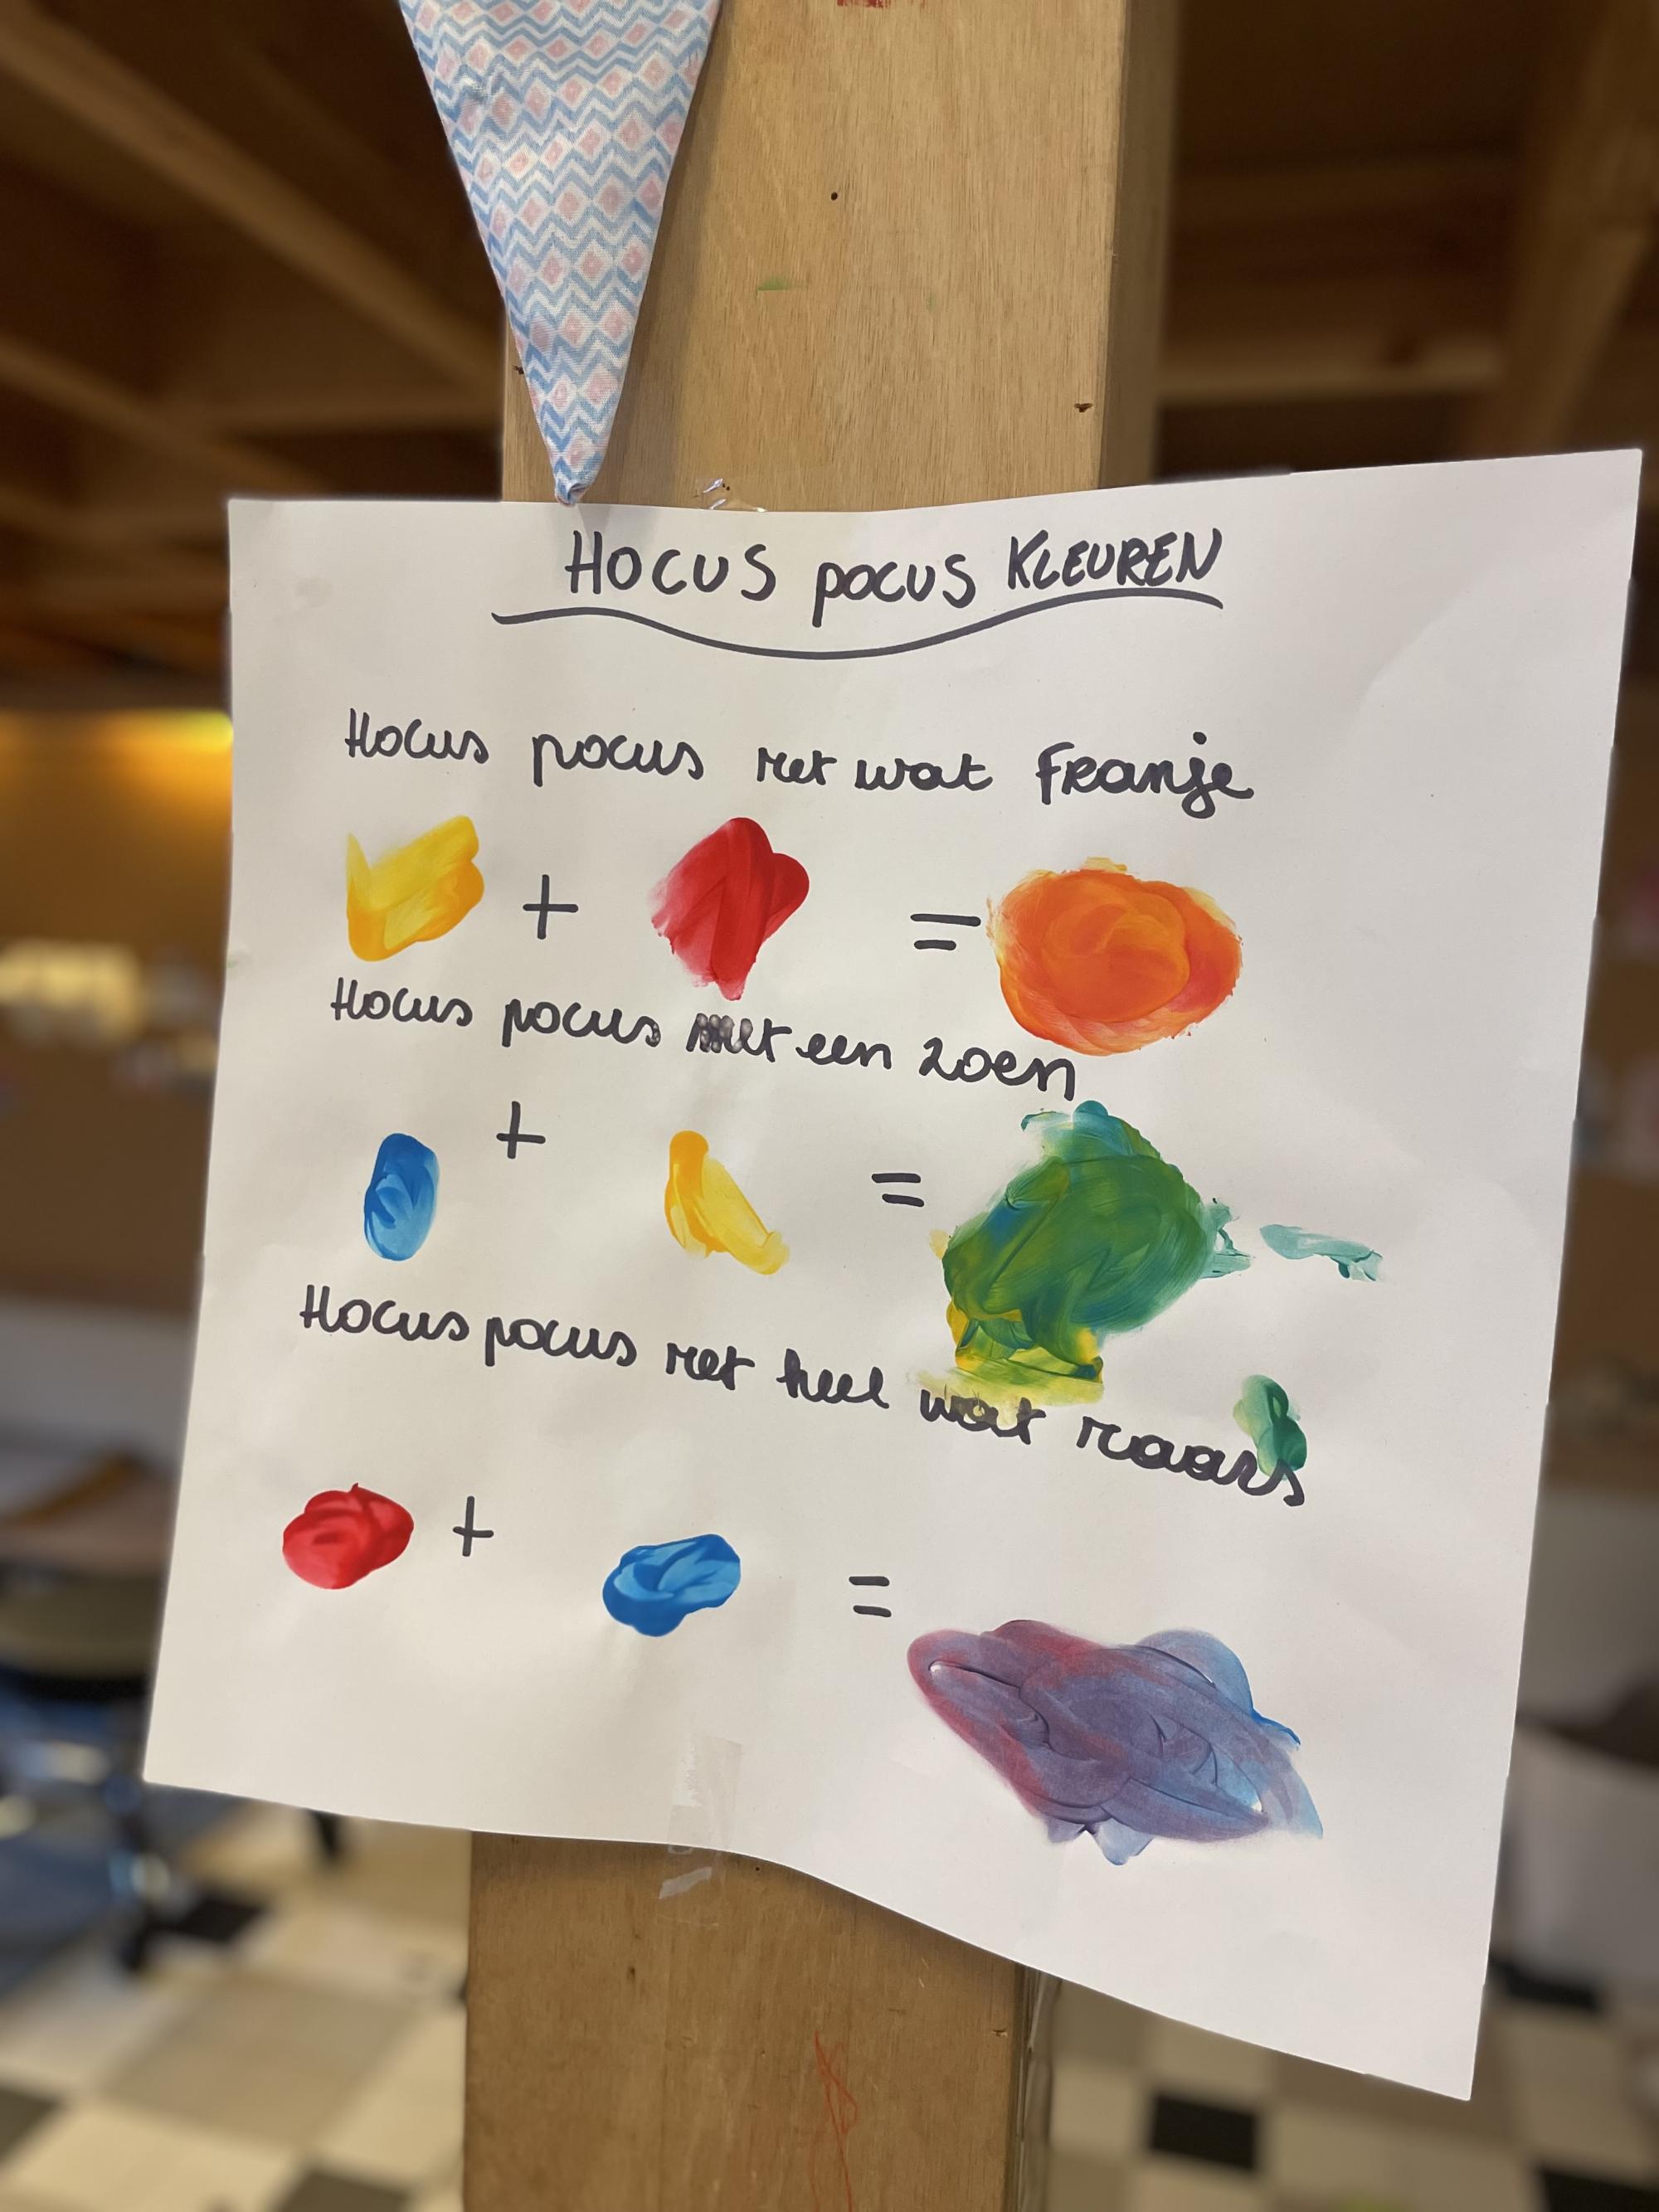 HOCUS pocus KLEUREN
Hocus pocus met wat franje
+ =
Hocus pocus met een zoen
+ =
Hocus pocus met heel wat raars
+ =